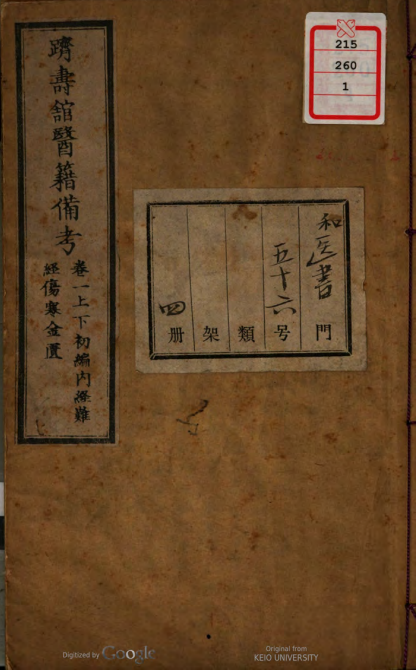 躋壽舘醫籍備考
卷一上下初編内經難
經傷寒金匱
215
260
1
和医書門
五十六号
類
架
四册
Digitized by Google
Original from
KEIO UNIVERSITY